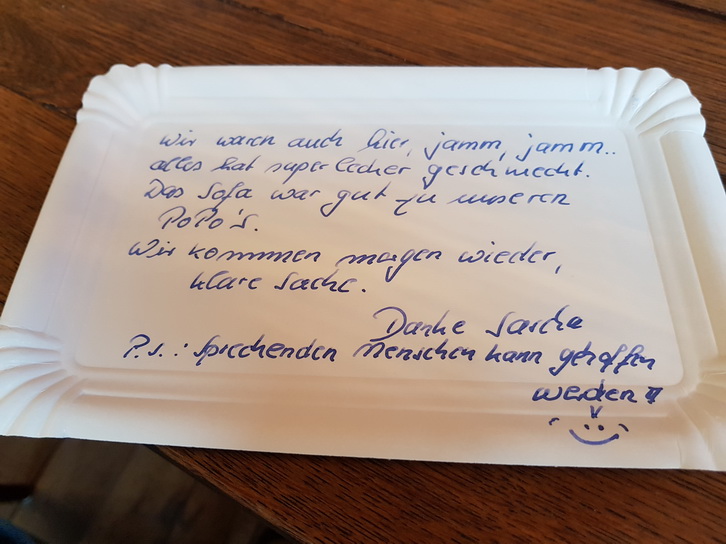 Wir waren auch hier, jamm, jamm..
alles hat super lecker geschmeckt.
Das Sofa war gut zu unseren
PoPo's.
Wir kommen morgen wieder,
klare Sache.
Danke Sascha
P.S.: Sprechenden Menschen kann geholfen
werden!!